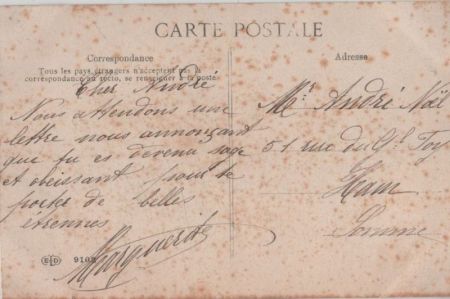 CARTE POSTALE
Correspondance
Tous les pays étrangers n'acceptent pas la
correspondance au recto, se renseigner à la poste
Cher André
Nous attendons une
lettre nous annonçant
que tu es devenu sage
et obeissant pour te
porter de belles
étrennes
Marguerite
ELD 910
Adresse
Mr André Noël
51 rue du Gl Foy
Ham
Somme